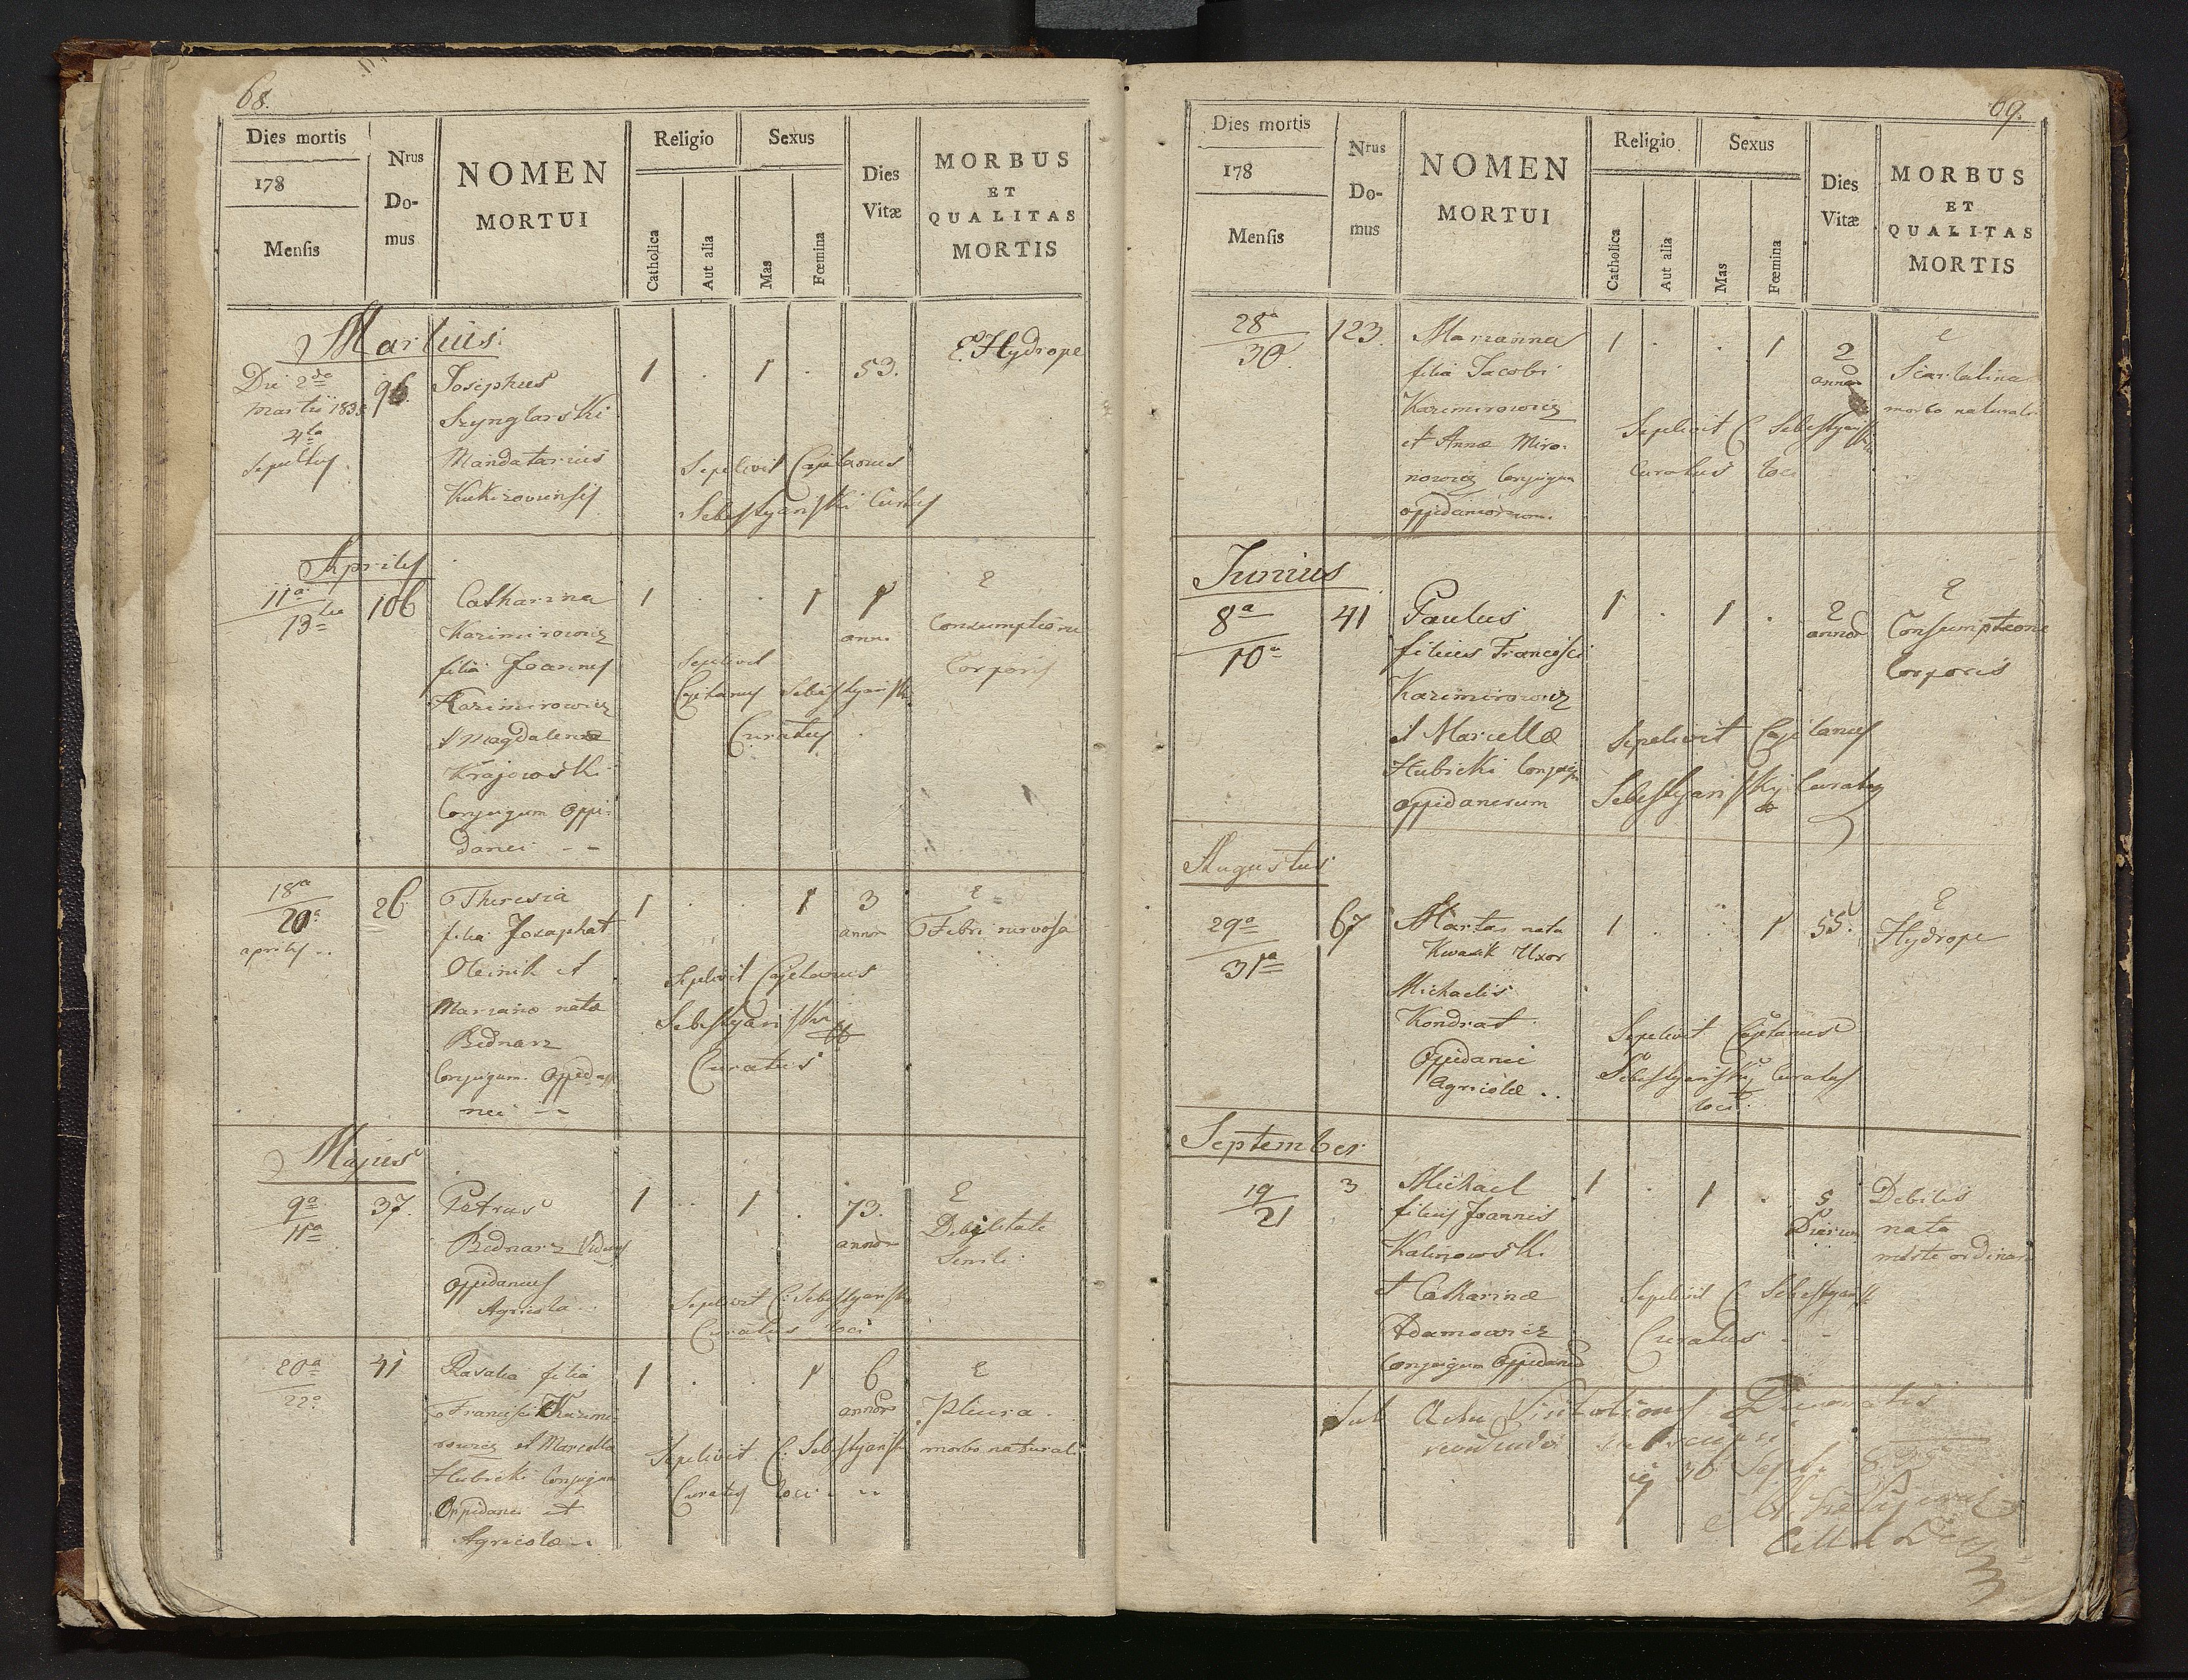 68.
Dies mortis
178
Mensis
Nrus
Do-
mus
NOMEN
MORTUI
Religio
Catholica
Aut alia
Sexus
Mas
Fœmina
Dies
Vitæ
MORBUS
ET
QUALITAS
MORTIS
Martius
Die 2da
Martii
4ta
Sepultus
96.
Josephus
Szynglarski
Mandatarius
Kukizoviensis
1 . 1 . 53.
E Hydrope
Sepelivit Cajetanus
Sebestyański Curatus
Aprilis
11a
13tia
106
Catharina
Kazimirowicz
filia Joannis
Kazimirowicz
et Magdalenæ
Krajowski
Conjugum Oppi-
danei - -
1 . . 1 1
anni
E
Consumptione
Corporis
Sepelivit
Cajetanus Sebestyański
Curatus
18a
20a
aprilis ..
26
Theresia
filia Jozaphat
Oleinik et
Marianæ nata
Bednarz
Conjugum Oppida
nei - -
1 . . 1 3
annor
E
Febri nervosa
Sepelivit Cajetanus
Sebestyański
Curatus
Majus
9a
11a
37.
Petrus
Bednarz Viduus
Oppidaneus
Agricola
1 . 1 . 73.
annor
E
Debilitate
Senili
Sepelivit C. Sebestyański
Curatus loci
20a
22a
41
Rosalia filia
Francisci Kazimi-
rowicz et Marcella
Hubicki Conjugum
Oppidanei et
Agricolæ
1 . . 1 6
annor
E
Pleura
morbo naturali
Sepelivit C. Sebestyański
Curatus loci
69.
Dies mortis
178
Mensis
Nrus
Do-
mus
NOMEN
MORTUI
Religio
Catholica
Aut alia
Sexus
Mas
Fœmina
Dies
Vitæ
MORBUS
ET
QUALITAS
MORTIS
28a
30
123.
Marianna
filia Jacobi
Kazimirowicz
et Annæ Miro-
nowicz Conjugum
oppidaneorum.
1 . . 1 2
annor
E
Scarlatina
morbo naturali
Sepelivit C Sebestyański
Curatus loci
Junius
8a
10a
41
Paulus
filius Francisci
Kazimirowicz
et Marcellæ
Hubicki Conjugum
oppidanerum
1 . 1 . 2
annor
E
Consumptione
Corporis
Sepelivit Cajetanus
Sebestyański Curatus
Augustus
29a
31a
67
Marta nata
Kwasik Uxor
Michaelis
Kondrat
Oppidanei
Agricolæ ..
1 . . 1 55.
E
Hydrope
Sepelivit Cajetanus
Sebestyański Curatus
loci
September
19
21
3
Michael
filius Joannis
Kalinowski
et Catharinæ
Adamowicz
Conjugum Oppidaneo
1 . 1 . 5
Dierum
Debilis
nata
morte ordinar
Sepelivit C. Sebestyański
Curatus
Sub Actu Visitationis Decanalis
30 Sept.